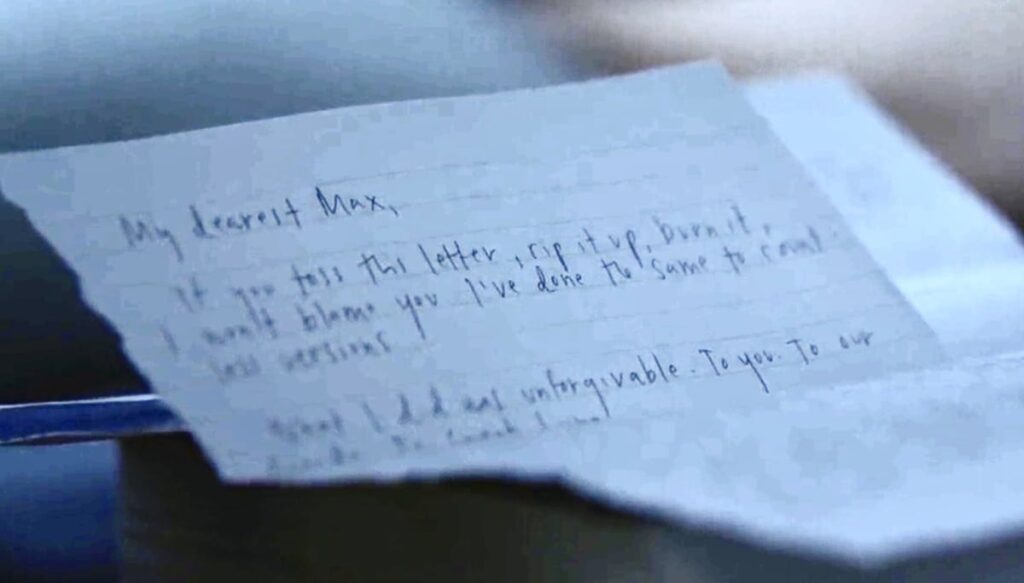 My dearest Max,
If you toss this letter, rip it up, burn it,
I won't blame you I've done the same to count
less versions
What I did was unforgivable. To you. To our